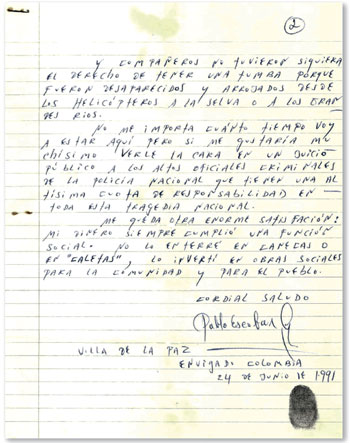 2
Y COMPAÑEROS NO TUVIERON SIQUIERA
EL DERECHO DE TENER UNA TUMBA PORQUE
FUERON DESAPARECIDOS Y ARROJADOS DESDE
LOS HELICÓPTEROS A LA SELVA O A LOS GRAN
DES RIOS.
NO ME IMPORTA CUÁNTO TIEMPO VOY
A ESTAR AQUÍ PERO SI ME GUSTARÍA MU
CHÍSIMO VERLE LA CARA EN UN JUICIO
PÚBLICO A LOS ALTOS OFICIALES CRIMINALES
DE LA POLICÍA NACIONAL QUE TIENEN UNA AL
TÍSIMA CUOTA DE RESPONSABILIDAD EN
TODA ESTA TRAGEDIA NACIONAL.
ME QUEDA OTRA ENORME SATISFACCIÓN:
MI DINERO SIEMPRE CUMPLIÓ UNA FUNCIÓN
SOCIAL. NO LO ENTERRÉ EN CANECAS O
EN "CALETAS", LO INVERTÍ EN OBRAS SOCIALES
PARA LA COMUNIDAD Y PARA EL PUEBLO.
CORDIAL SALUDO
Pablo Escobar G
VILLA DE LA PAZ
ENVIGADO COLOMBIA
24 DE JUNIO DE 1991